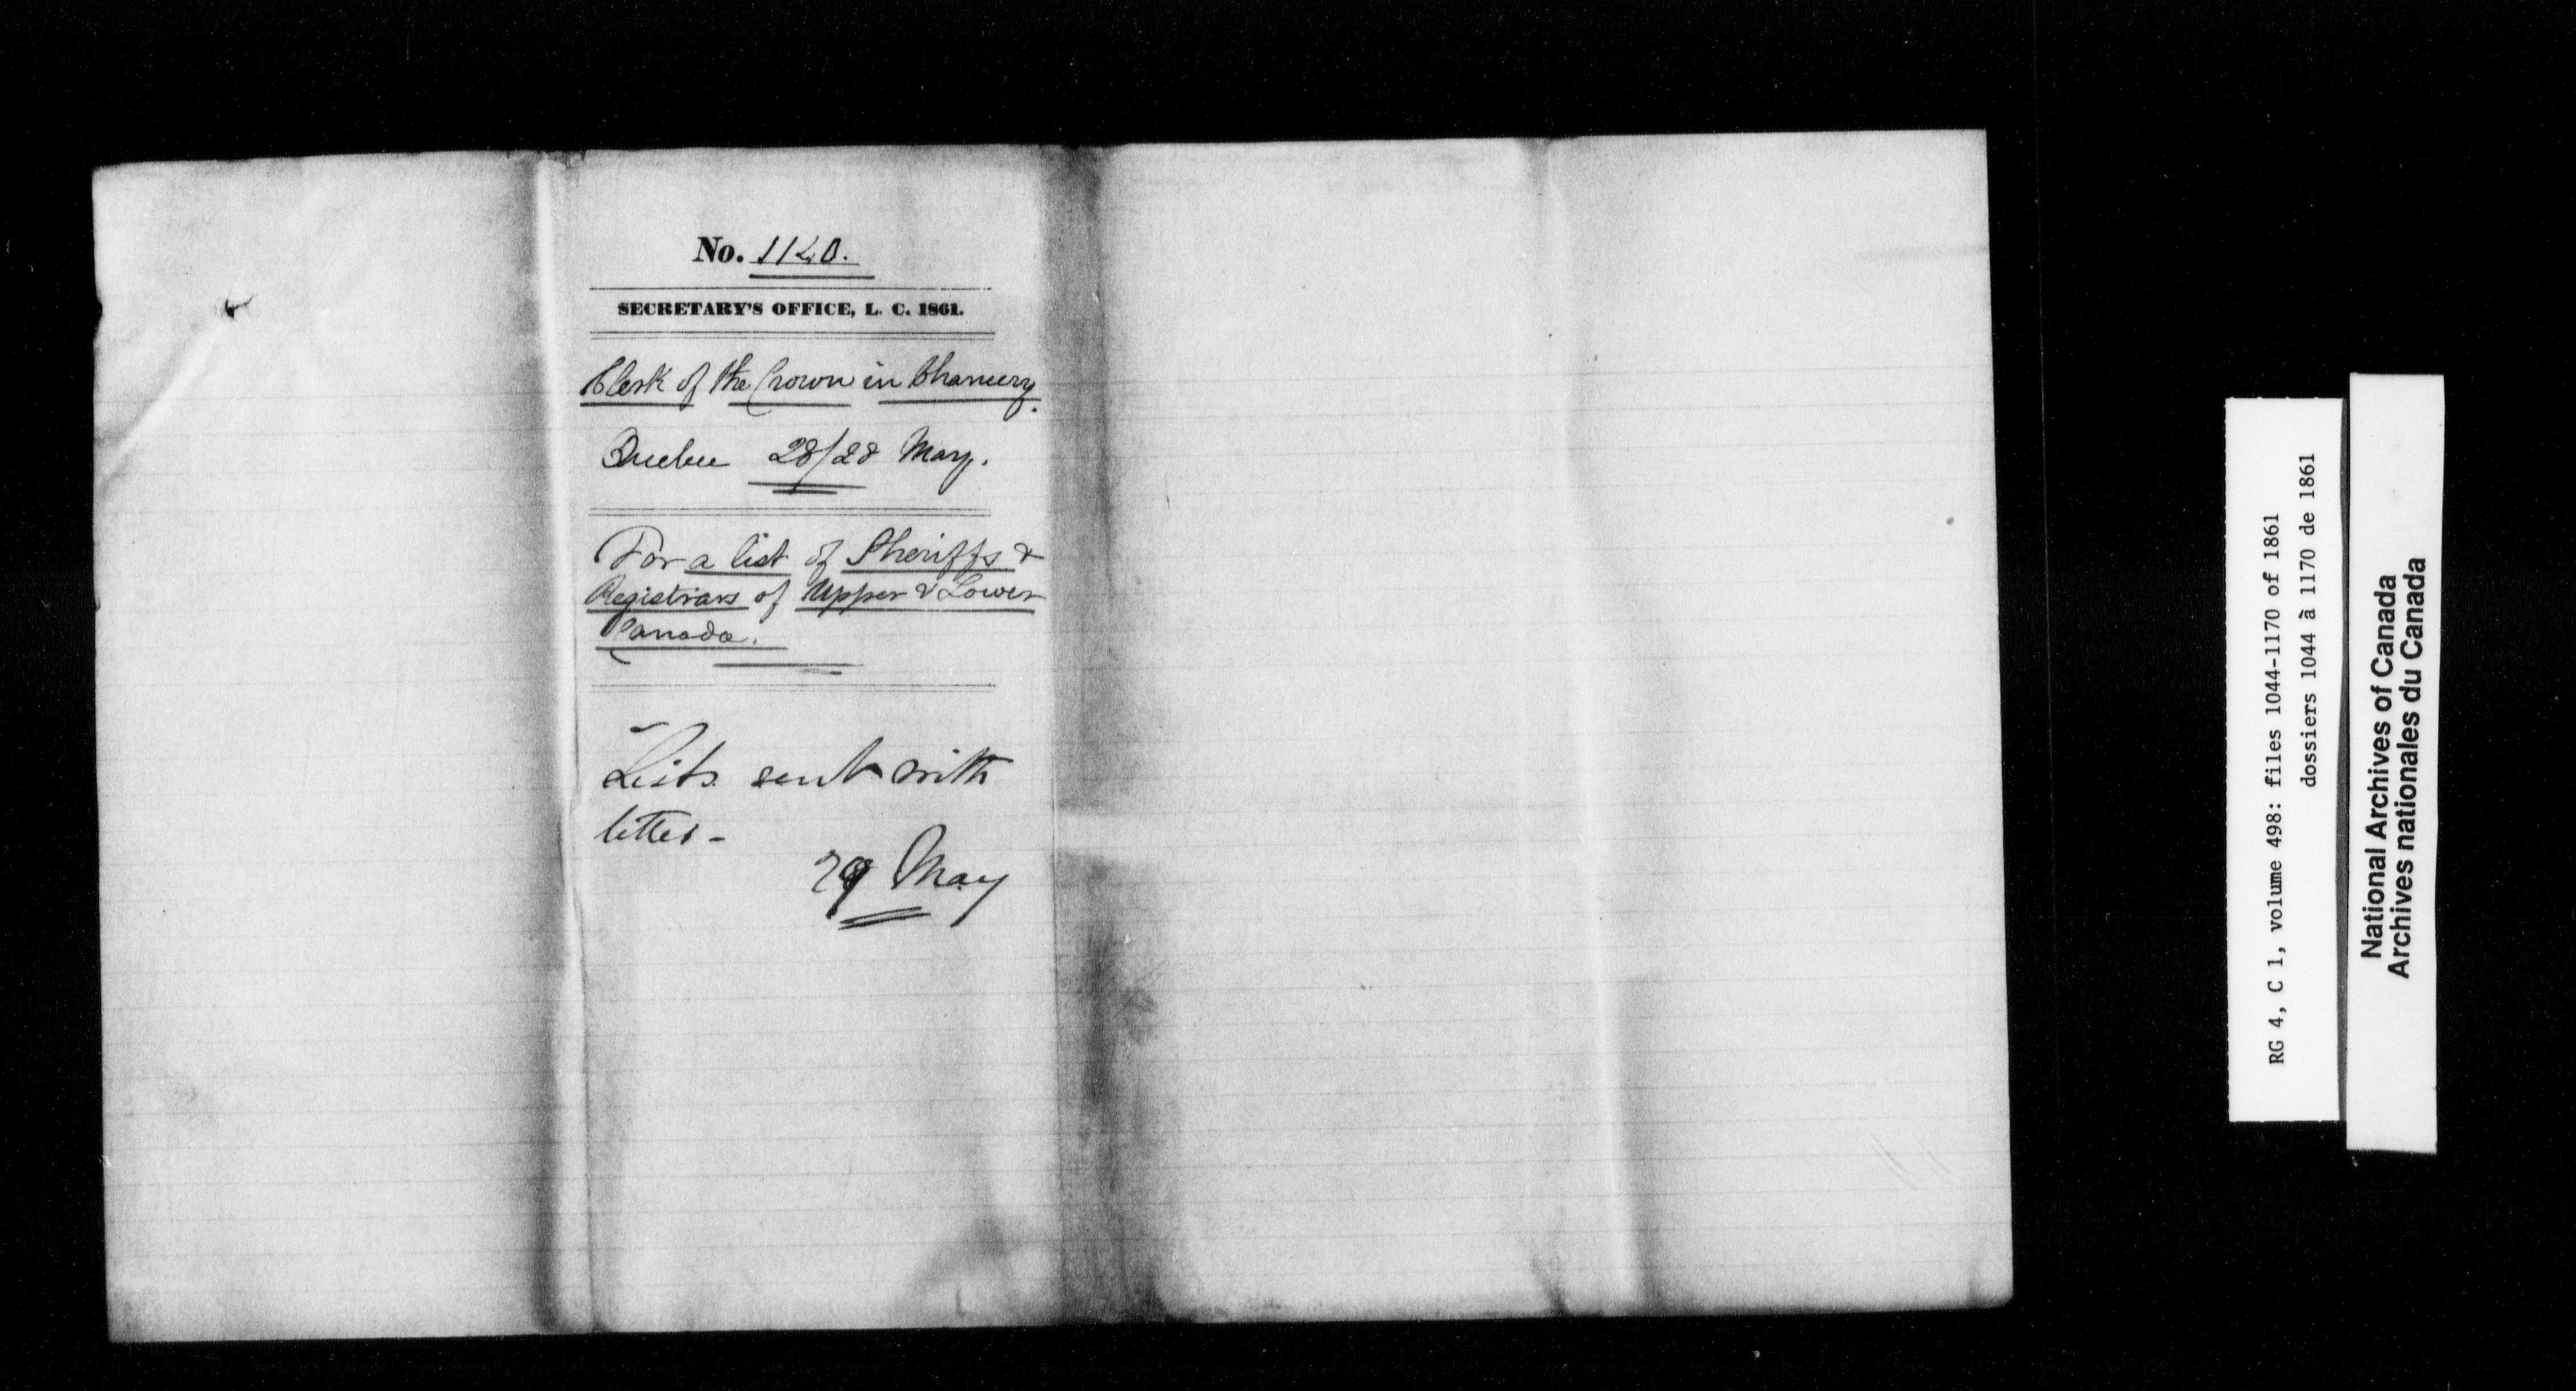 No. 1140.
SECRETARY'S OFFICE, L. C. 1861.
Clerk of the Crown in Chancery.
Quebec 28/28 May.
For a list of Sheriffs &
Registrars of Upper & Lower
Canada.
Lists sent with
letter -
29 May
RG 4, C 1, volume 498: files 1044-1170 of 1861
dossiers 1044 à 1170 de 1861
National Archives of Canada
Archives nationales du Canada